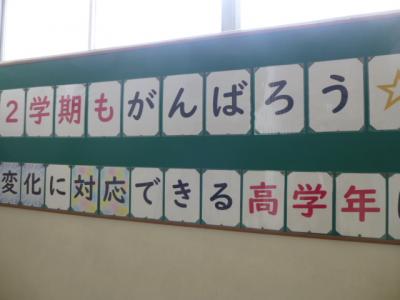 2学期もがんばろう☆
変化に対応できる高学年